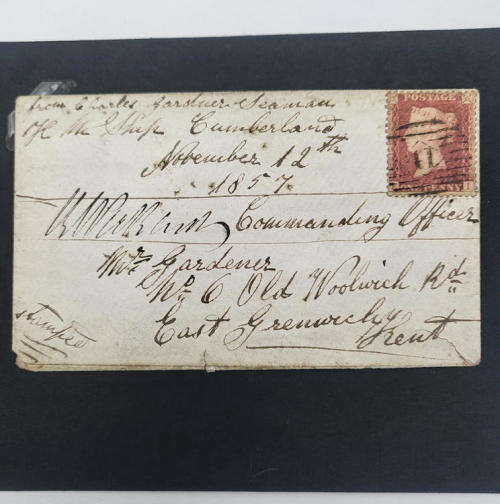 from Charles Gardner Seaman
Ship Cumberland
November 12th
1857
Commanding Officer
Mr Gardener
No 6 Old Woolwich Rd
East Greenwich
Kent
stamped
POSTAGE
PENNY